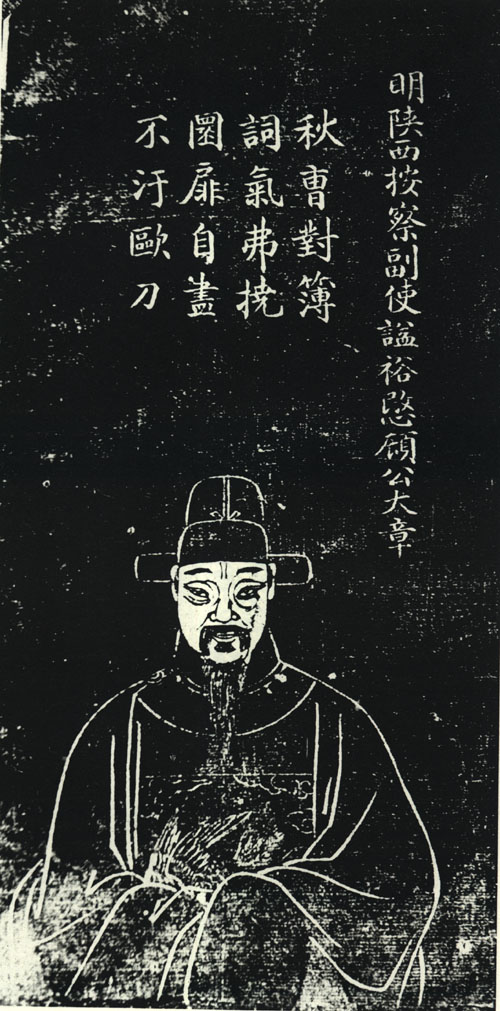 明陝西按察副使謚裕愍顧公大章
秋曹對簿
詞氣弗撓
圜扉自盡
不汙歐刀